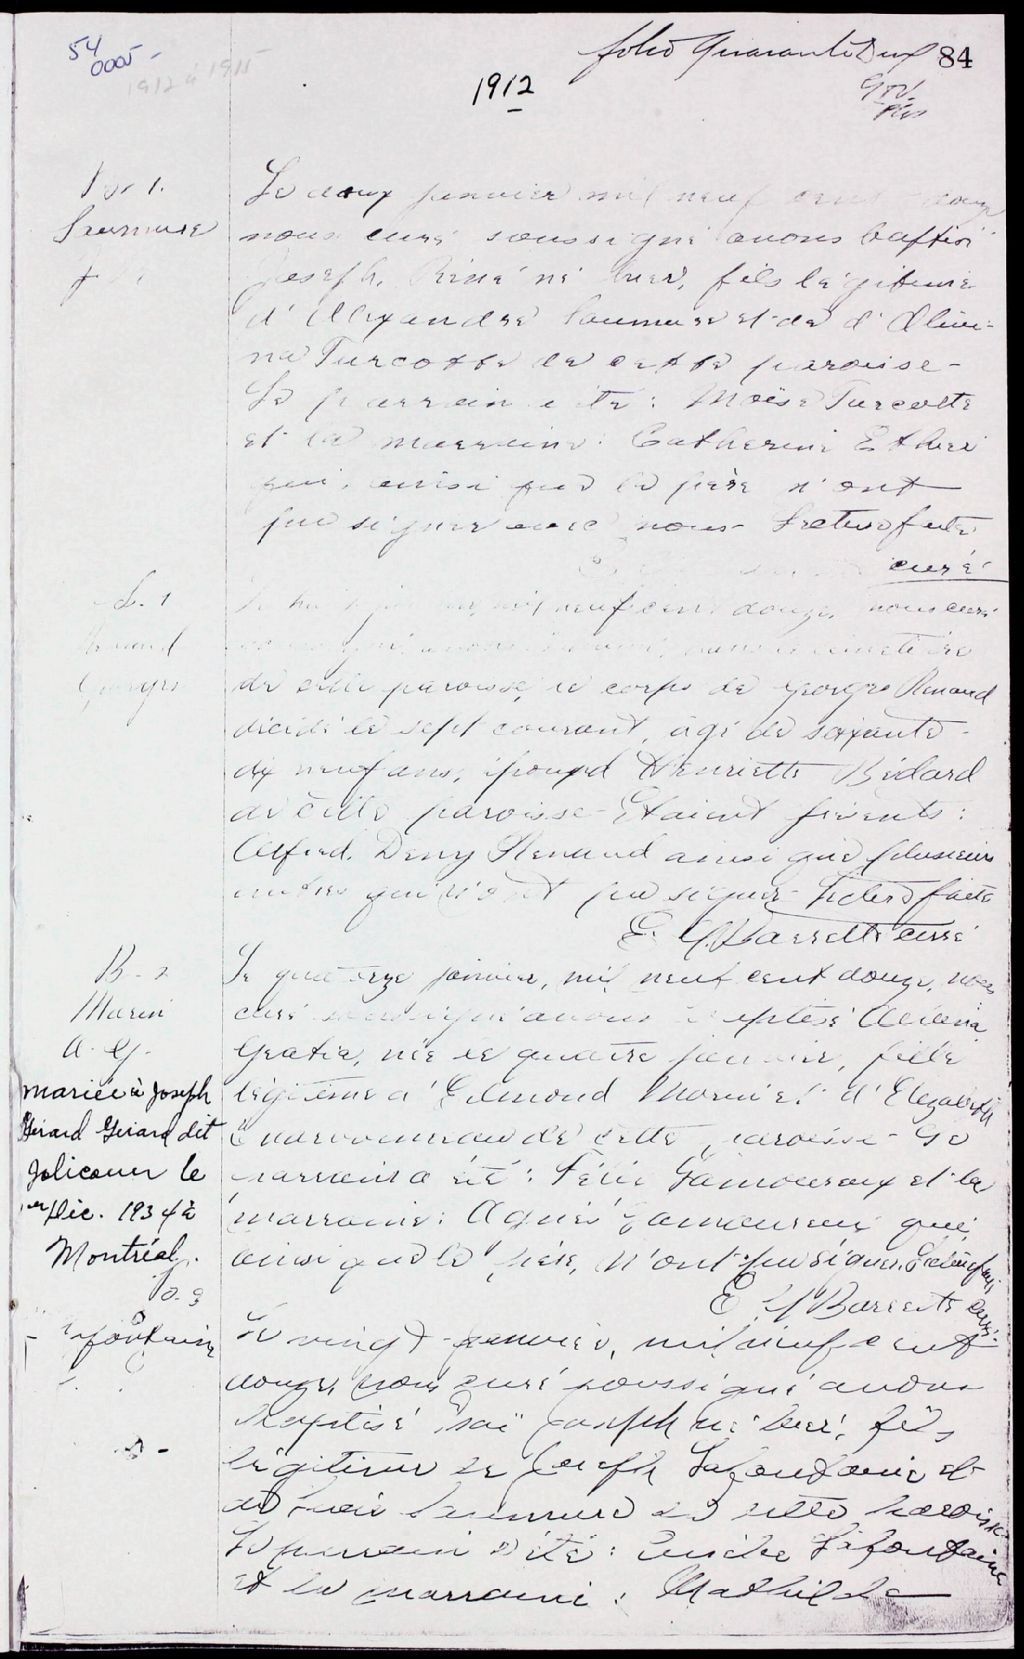 54
0005-
1912 à 1915
folio Quarante Deux 84
1912
B- 1.
Saumure
J.
Le deux janvier mil neuf cent douze
nous curé soussigné avons baptisé
Joseph, René né hier, fils légitime
d'Alexandre Saumure et de d'Alvi-
na Turcotte de cette paroisse-
Le parrain a été: Moïse Turcotte
et la marraine: Catherine Ethier
qui, ainsi que le père n'ont
pu signer avec nous- Lecture faite
curé
S. 1
Renaud
Georges
Le huit mil neuf cent douze, nous curé
soussigné, avons inhumé, dans le cimetière
de cette paroisse, le corps de Georges Renaud
décédé le sept courant, âgé de soixante-
dix neuf ans, époux d'Henriette Bédard
de cette paroisse- Étaient présents:
Alfred, Deny Renaud ainsi que plusieurs
autres qui n'ont pu signer- Lecture faite
E. Barrette curé
B- 2
Morin
A. G.
mariée à Joseph
Gérard Girard dit
Jolicoeur le
1er Déc. 1934 à
Montréal.
Le quatorze janvier, mil neuf cent douze, nous
curé soussigné avons baptisé
Gratia, née le quatre janvier, fille
légitime d'Edmond Morin et d'Elizabeth
de cette paroisse- Le
parrain a été: Félix Lamoureux et la
marraine: Agnès Lamoureux qui,
ainsi que le père, n'ont pu signer. Lecture faite
E. Barrette curé.
B. 3
Lafontaine
Le vingt janvier, mil neuf cent
douze, nous curé soussigné avons
baptisé Joseph né hier, fils
légitime de Joseph Lafontaine et
de Saumure de cette paroisse-
Le parrain a été: Lafontaine
et la marraine: Mathilda